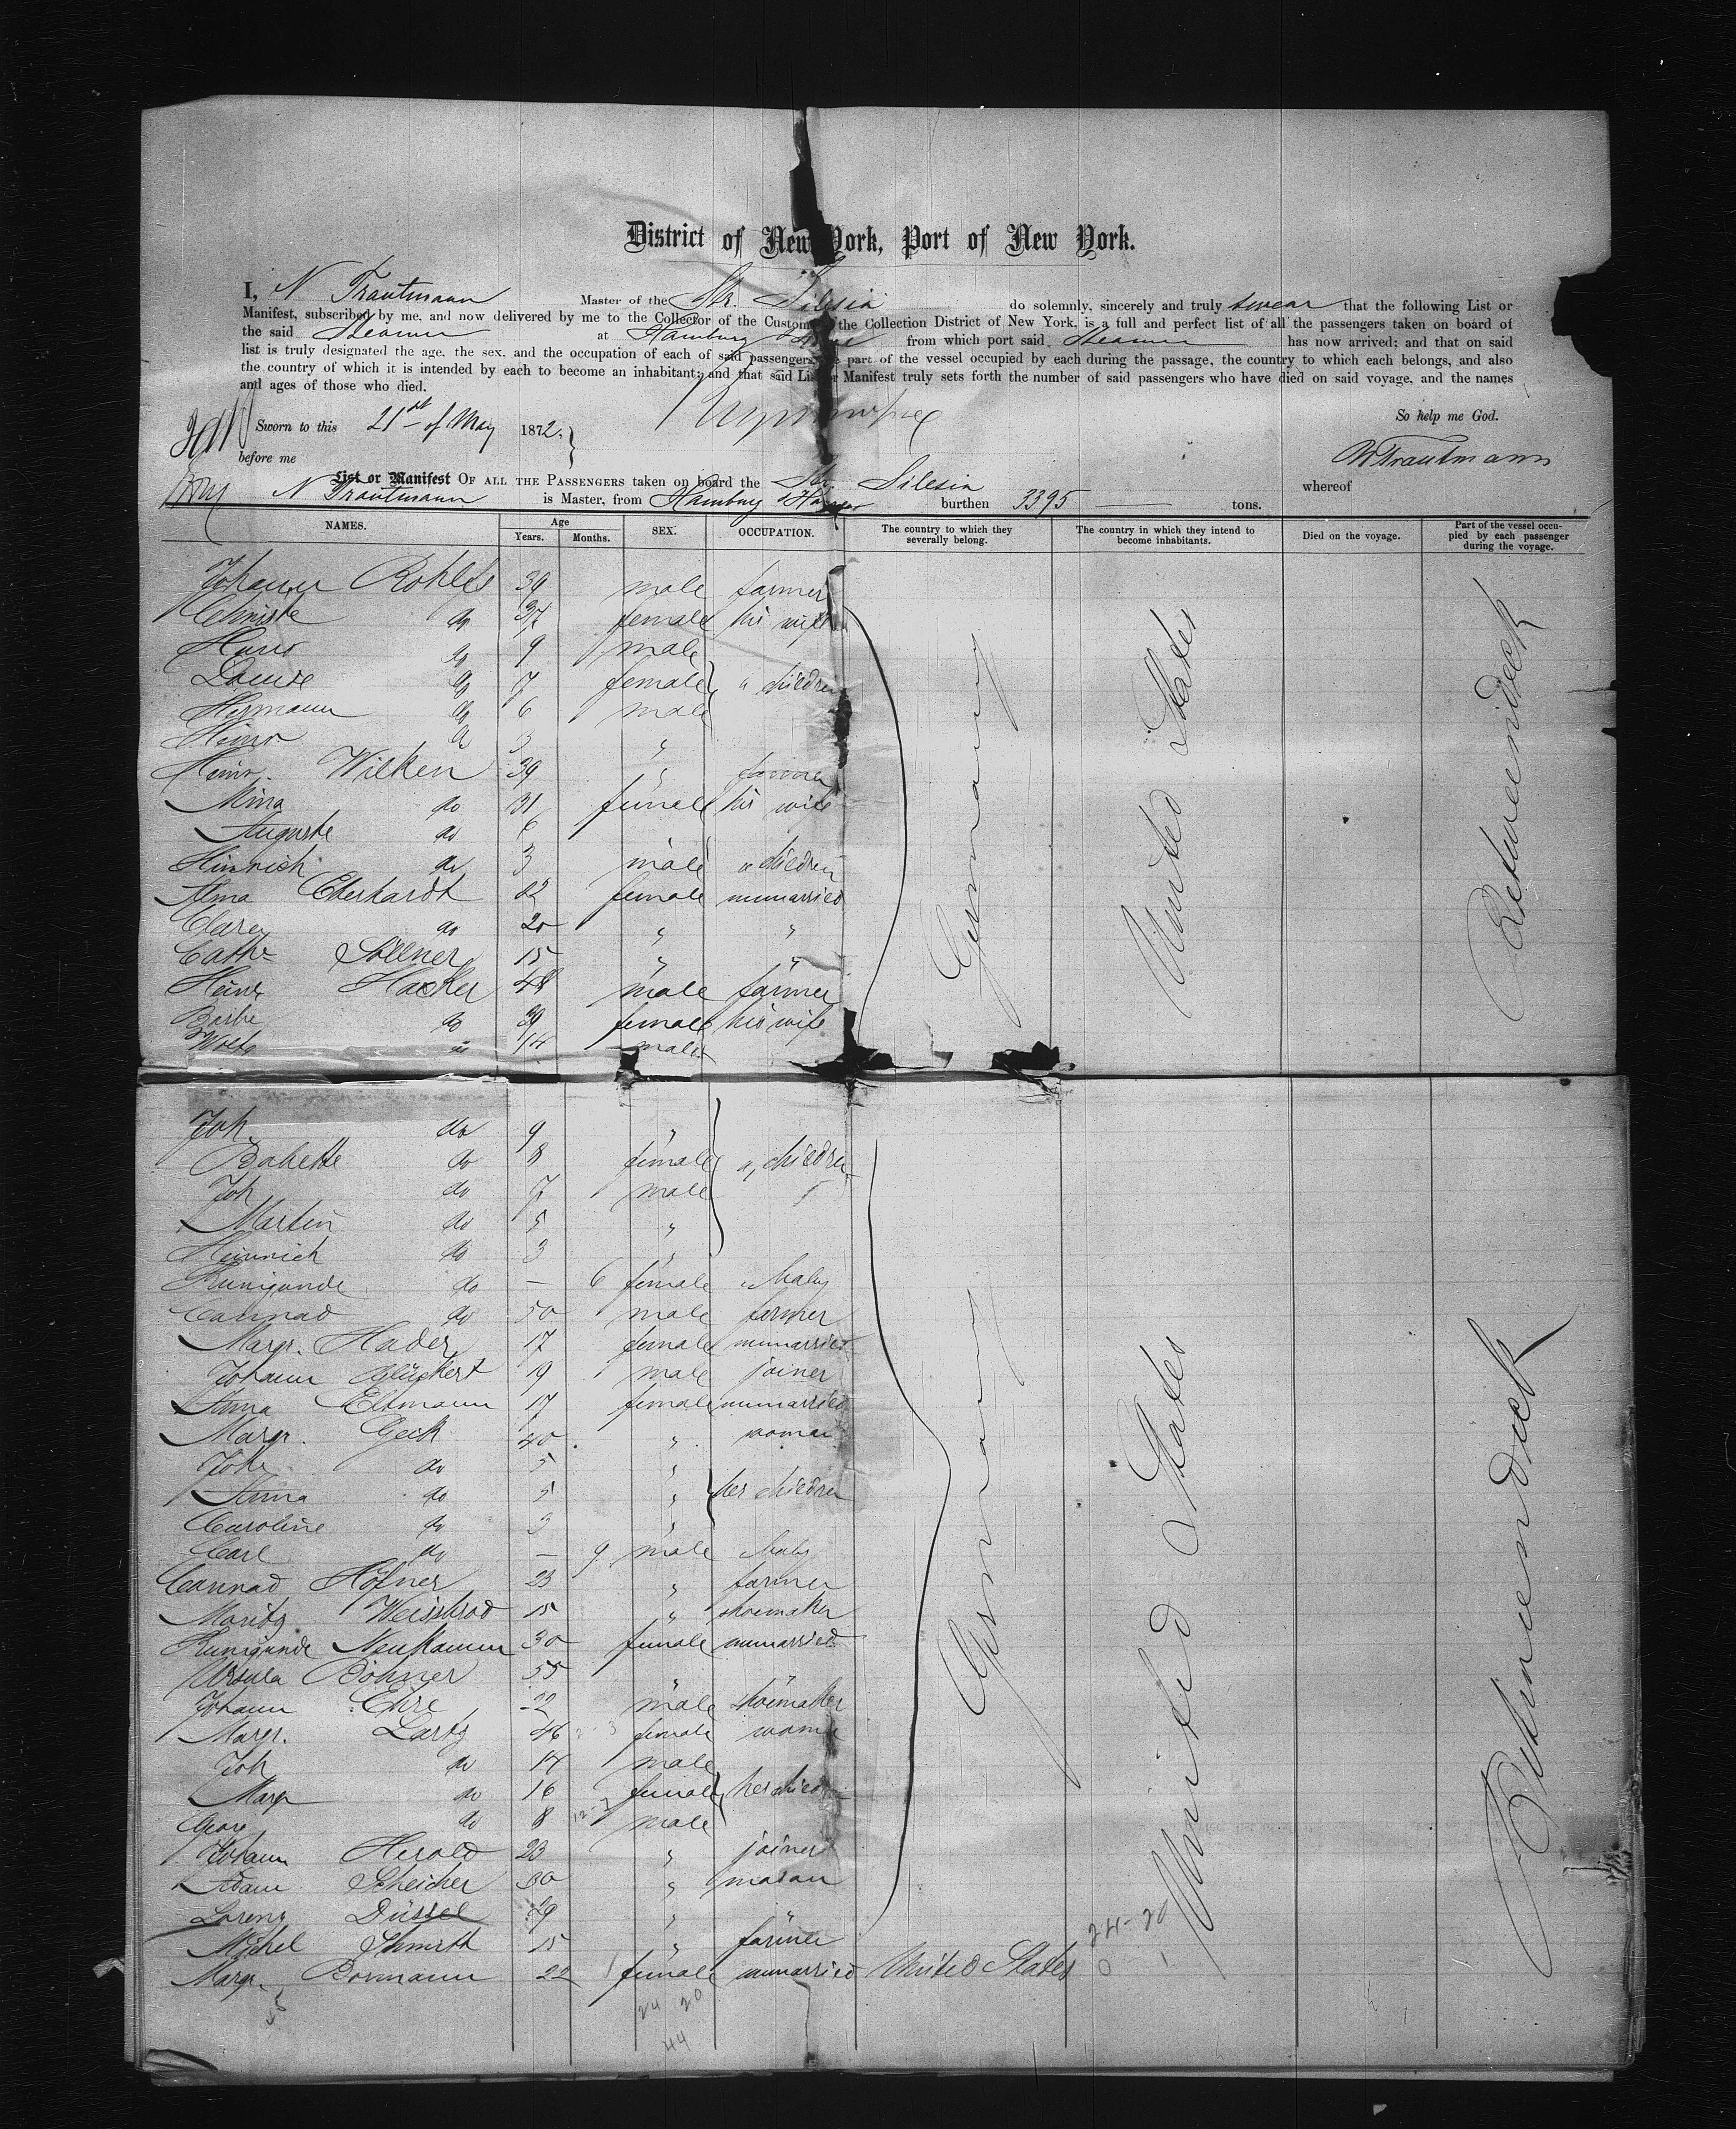 District of New York, Port of New York.
I, N Trautmann Master of the Str. Silesia do solemnly, sincerely and truly swear that the following List or
Manifest, subscribed by me, and now delivered by me to the Collector of the Customs of the Collection District of New York, is a full and perfect list of all the passengers taken on board of
the said Steamer at Hamburg & Havre from which port said Steamer has now arrived; and that on said
list is truly designated the age, the sex, and the occupation of each of said passengers, the part of the vessel occupied by each during the passage, the country to which each belongs, and also
the country of which it is intended by each to become an inhabitant; and that said List or Manifest truly sets forth the number of said passengers who have died on said voyage, and the names
and ages of those who died.
So help me God.
Sworn to this 21st of May 1872.
before me
N Trautmann
List or Manifest OF ALL THE PASSENGERS taken on board the Str. Silesia whereof
N Trautmann is Master, from Hamburg & Havre burthen 3395 tons.
NAMES. Age Years. Months. SEX. OCCUPATION. The country to which they severally belong. The country in which they intend to become inhabitants. Died on the voyage. Part of the vessel occupied by each passenger during the voyage.
Johann Rohlfs 39 male farmer
Christe do 37 female his wife
Hans do 9 male
Louise do 7 female " children
Hermann do 6 male
Heinr. do 3 "
Heinr. Wilken 39 " farmer
Mina do 31 female his wife
Auguste do 6 "
Hinrich do 3 male " children
Alma Eberhardt 22 female unmarried
Clara do 20 " "
Cathe Söllner 15 " "
Heinr. Hacker 48 male farmer
Barbe do 39 female his wife
Wolfg do 14 male
Germany United States Betweendeck
Joh. do 9 "
Babette do 8 female " children
Joh do 7 male
Martin do 5 "
Heinrich do 3 "
Kunigunde do — 6 female " Baby
Connad do 50 male farmer
Margr. Hader 17 female unmarried
Johann Glückert 19 male joiner
Anna Eltmann 17 female unmarried
Margr. Geck 40 " woman
Joh. do 5 "
Anna do 5 " her children
Caroline do 3 "
Carl do — 9 male Baby
Connad Höfner 23 " farmer
Moritz Weissbrod 15 " shoemaker
Kunigunde Neukamm 30 female unmarried
Ursula Böhner 55 " "
Johann Ehre 22 male shoemaker
Margr. Lartz 46 female woman
Joh do 14 male
Margr do 16 female her children
Georg do 8 male
Johann Herold 23 " joiner
Adam Scheicher 30 " mason
Lorenz Düssel 29 " "
Michel Schmidt 15 " farmer
Margr. Bormann 22 female unmarried United States
Germany United States Betweendeck
24-20
0 1
24 20
44